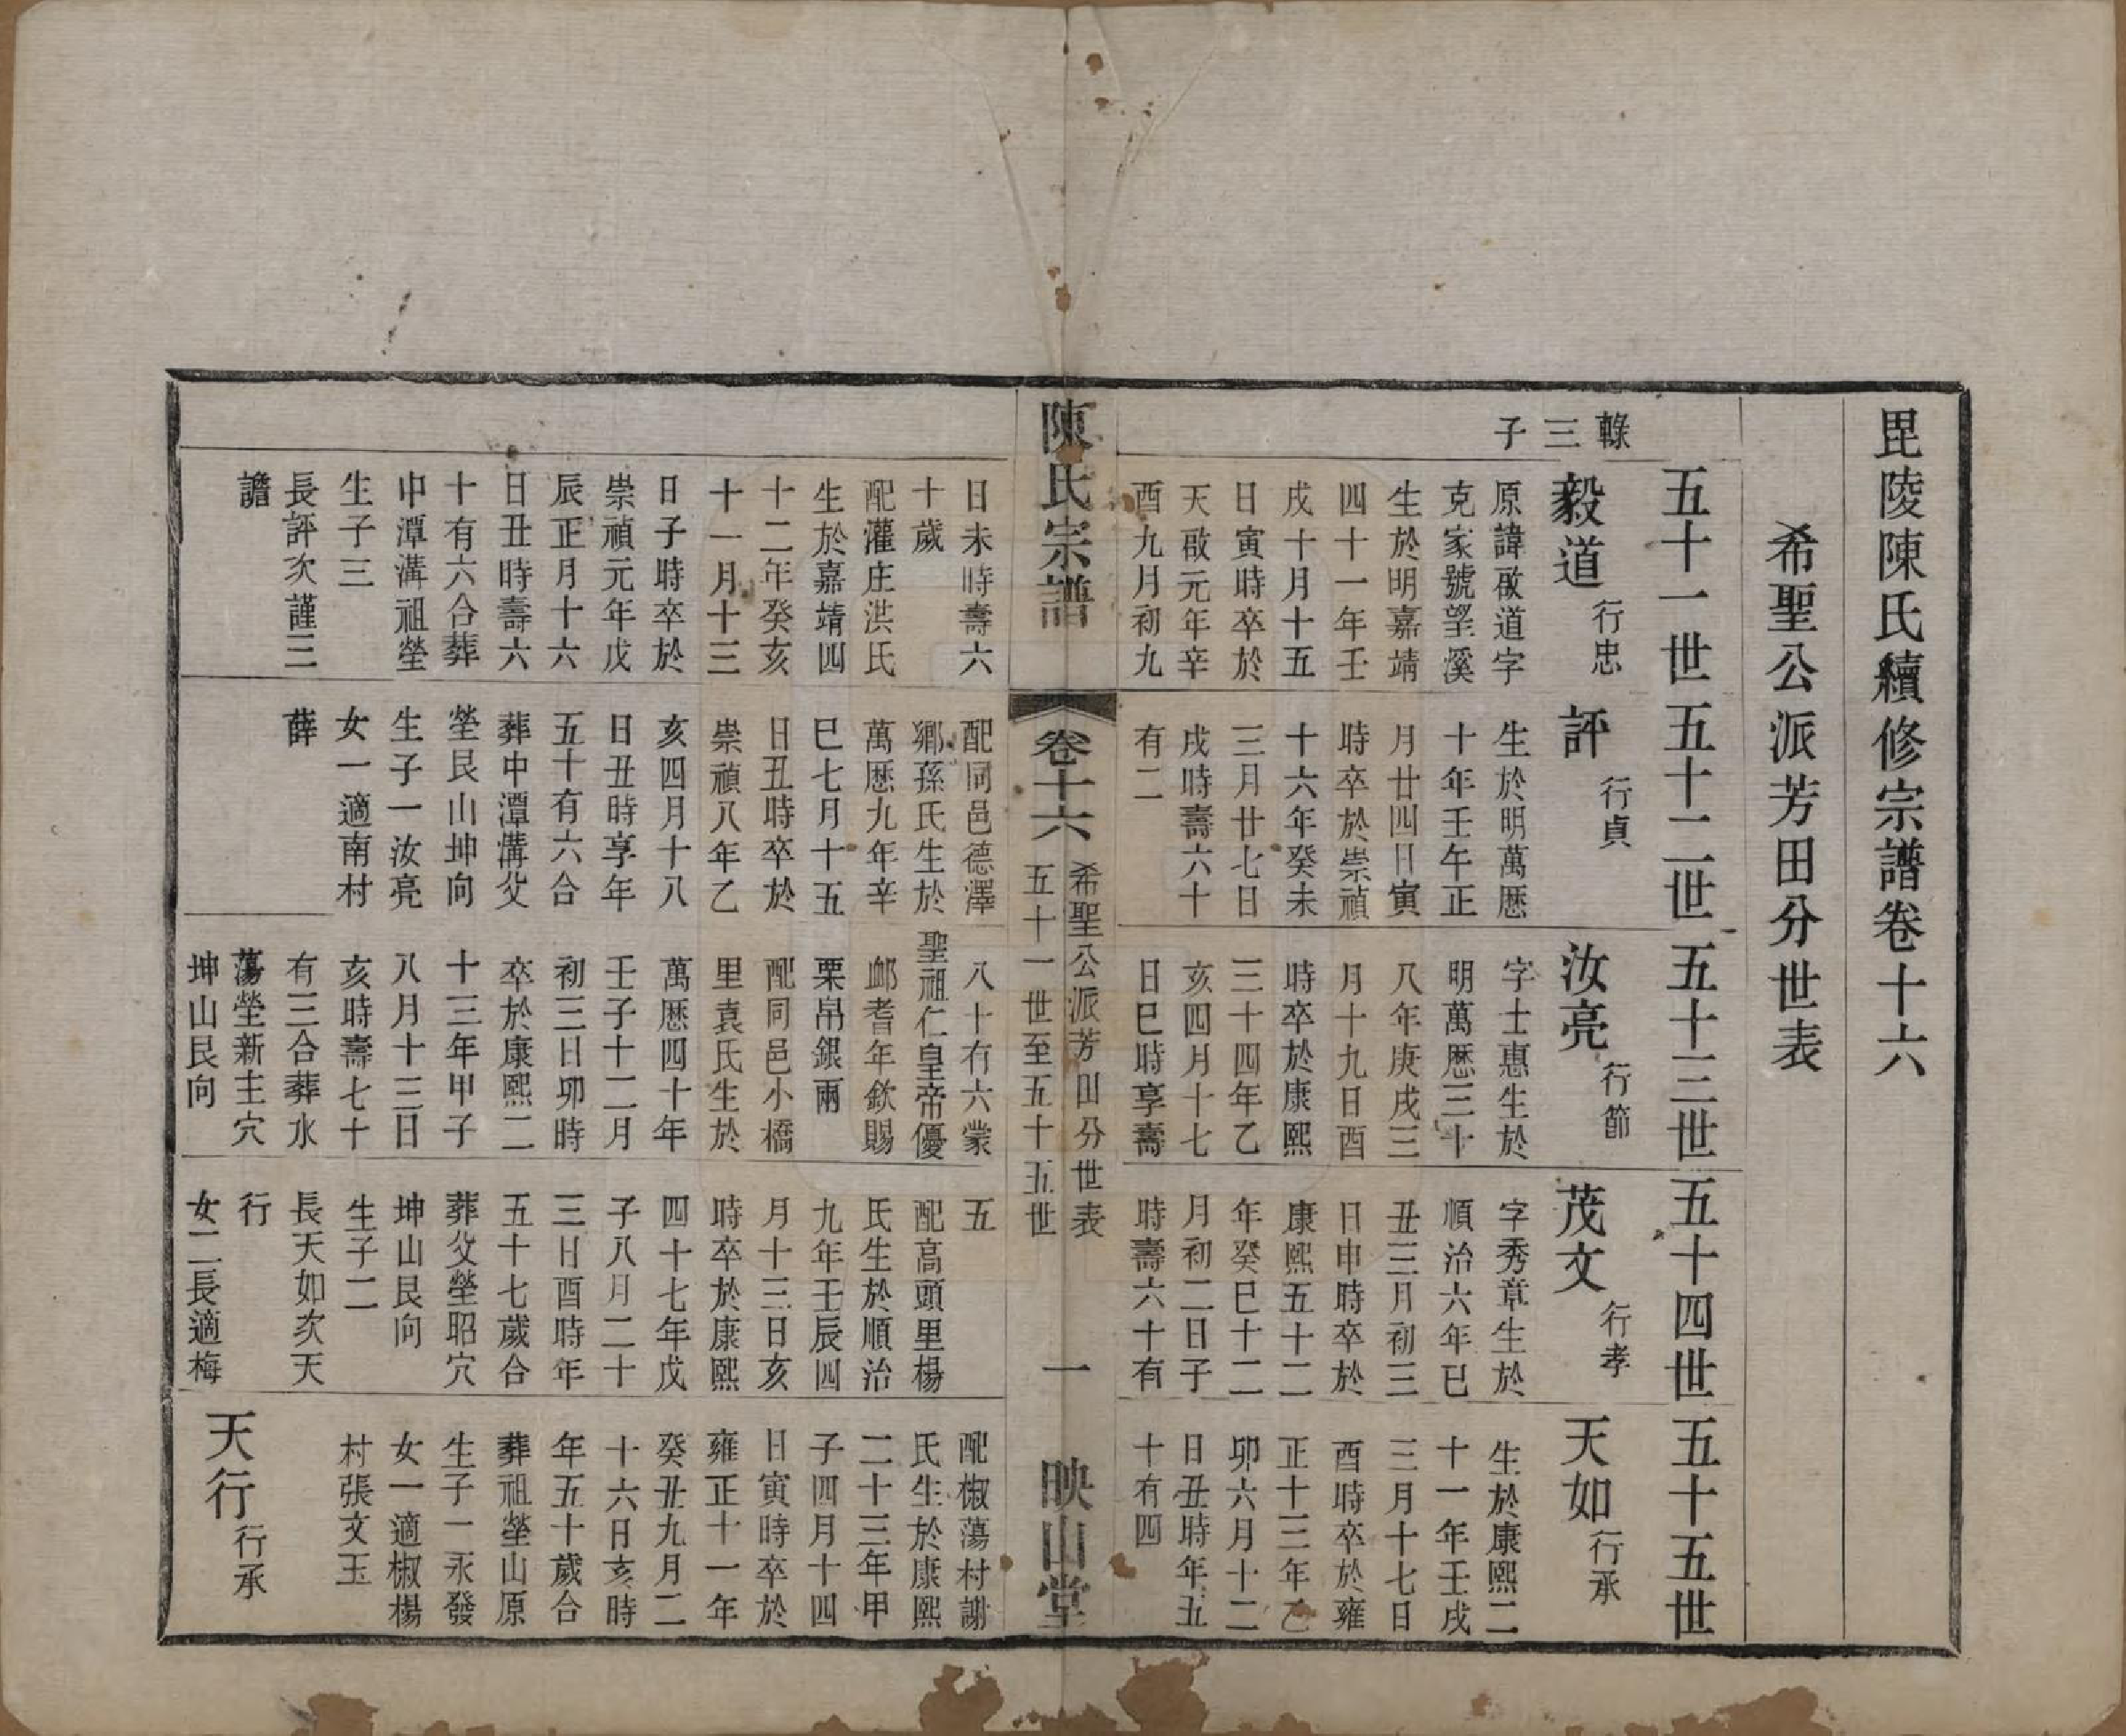 毘陵陳氏續修宗譜卷十六
希聖公派芳田分世表
五十一世
五十二世
五十三世
五十四世
五十五世
三子
毅道 行忠
原諱啟道字
克家號望溪
生於明嘉靖
四十一年壬
戌十月十五
日寅時卒於
天啟元年辛
酉九月初九
評 行貞
生於明萬歷
十年壬午正
月廿四日寅
時卒於崇禎
十六年癸未
三月廿七日
戌時壽六十
有二
汝亮 行節
字士惠生於
明萬歷三十
八年庚戌三
月十九日酉
時卒於康熙
三十四年乙
亥四月十七
日巳時享壽
茂文 行孝
字秀章生於
順治六年巳
丑三月初三
日申時卒於
康熙五十二
年癸巳十二
月初二日子
時壽六十有
天如 行承
生於康熙二
十一年壬戌
三月十七日
酉時卒於雍
正十三年乙
卯六月十二
日丑時年五
十有四
陳氏宗譜
卷十六
希聖公派芳田分世表
五十一世至五十五世
一
映山堂
日未時壽六
十歲
配灌庄洪氏
生於嘉靖四
十二年癸亥
十一月十三
日子時卒於
崇禎元年戊
辰正月十六
日丑時壽六
十有六合葬
中潭溝祖塋
生子三
長評次謹三
譫
配同邑德澤
鄉孫氏生於
萬歷九年辛
巳七月十五
日丑時卒於
崇禎八年乙
亥四月十八
日丑時享年
五十有六合
葬中潭溝父
塋艮山坤向
生子一汝亮
女一適南村
薛
八十有六蒙
聖祖仁皇帝優
䘏耆年欽賜
粟帛銀兩
配同邑小橋
里袁氏生於
萬歷四十年
壬子十二月
初三日卯時
卒於康熙二
十三年甲子
八月十三日
亥時壽七十
有三合葬水
蕩塋新主穴
坤山艮向
五
配高頭里楊
氏生於順治
九年壬辰四
月十三日亥
時卒於康熙
四十七年戊
子八月二十
三日酉時年
五十七歲合
葬父塋昭穴
坤山艮向
生子二
長天如次天
行
女二長適梅
配椒蕩村謝
氏生於康熙
二十三年甲
子四月十四
日寅時卒於
雍正十一年
癸丑九月二
十六日亥時
年五十歲合
葬祖塋山原
生子一永發
女一適椒楊
村張文玉
天行 行承